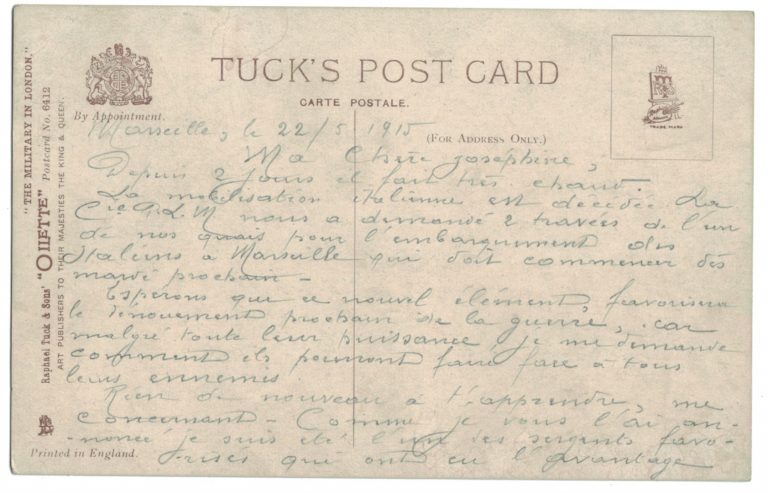 "THE MILITARY IN LONDON."
Raphael Tuck & Sons' "OILETTE" Postcard No. 6412
ART PUBLISHERS TO THEIR MAJESTIES THE KING & QUEEN.
By Appointment.
TUCK'S POST CARD
CARTE POSTALE.
(FOR ADDRESS ONLY.)
TRADE MARK
Marseille, le 22/5 1915
Ma Chère Joséphine,
Depuis 2 jours il fait très chaud.
La mobilisation italienne est décidée. La
Cie P.L.M nous a demandé 2 travées de l'un
de nos quais pour l'embarquement des
Italiens à Marseille qui doit commencer dès
mardi prochain -
Esperons que ce nouvel élément, favorisera
le dénouement prochain de la guerre, car
malgré toute leur puissance je me demande
comment ils pourront faire face à tous
leurs ennemis
Rien de nouveau à t'apprendre, me
concernant - Comme je vous l'ai an-
-noncé je suis été l'un des sergents favo-
-risés qui ont eu l'avantage
Printed in England.